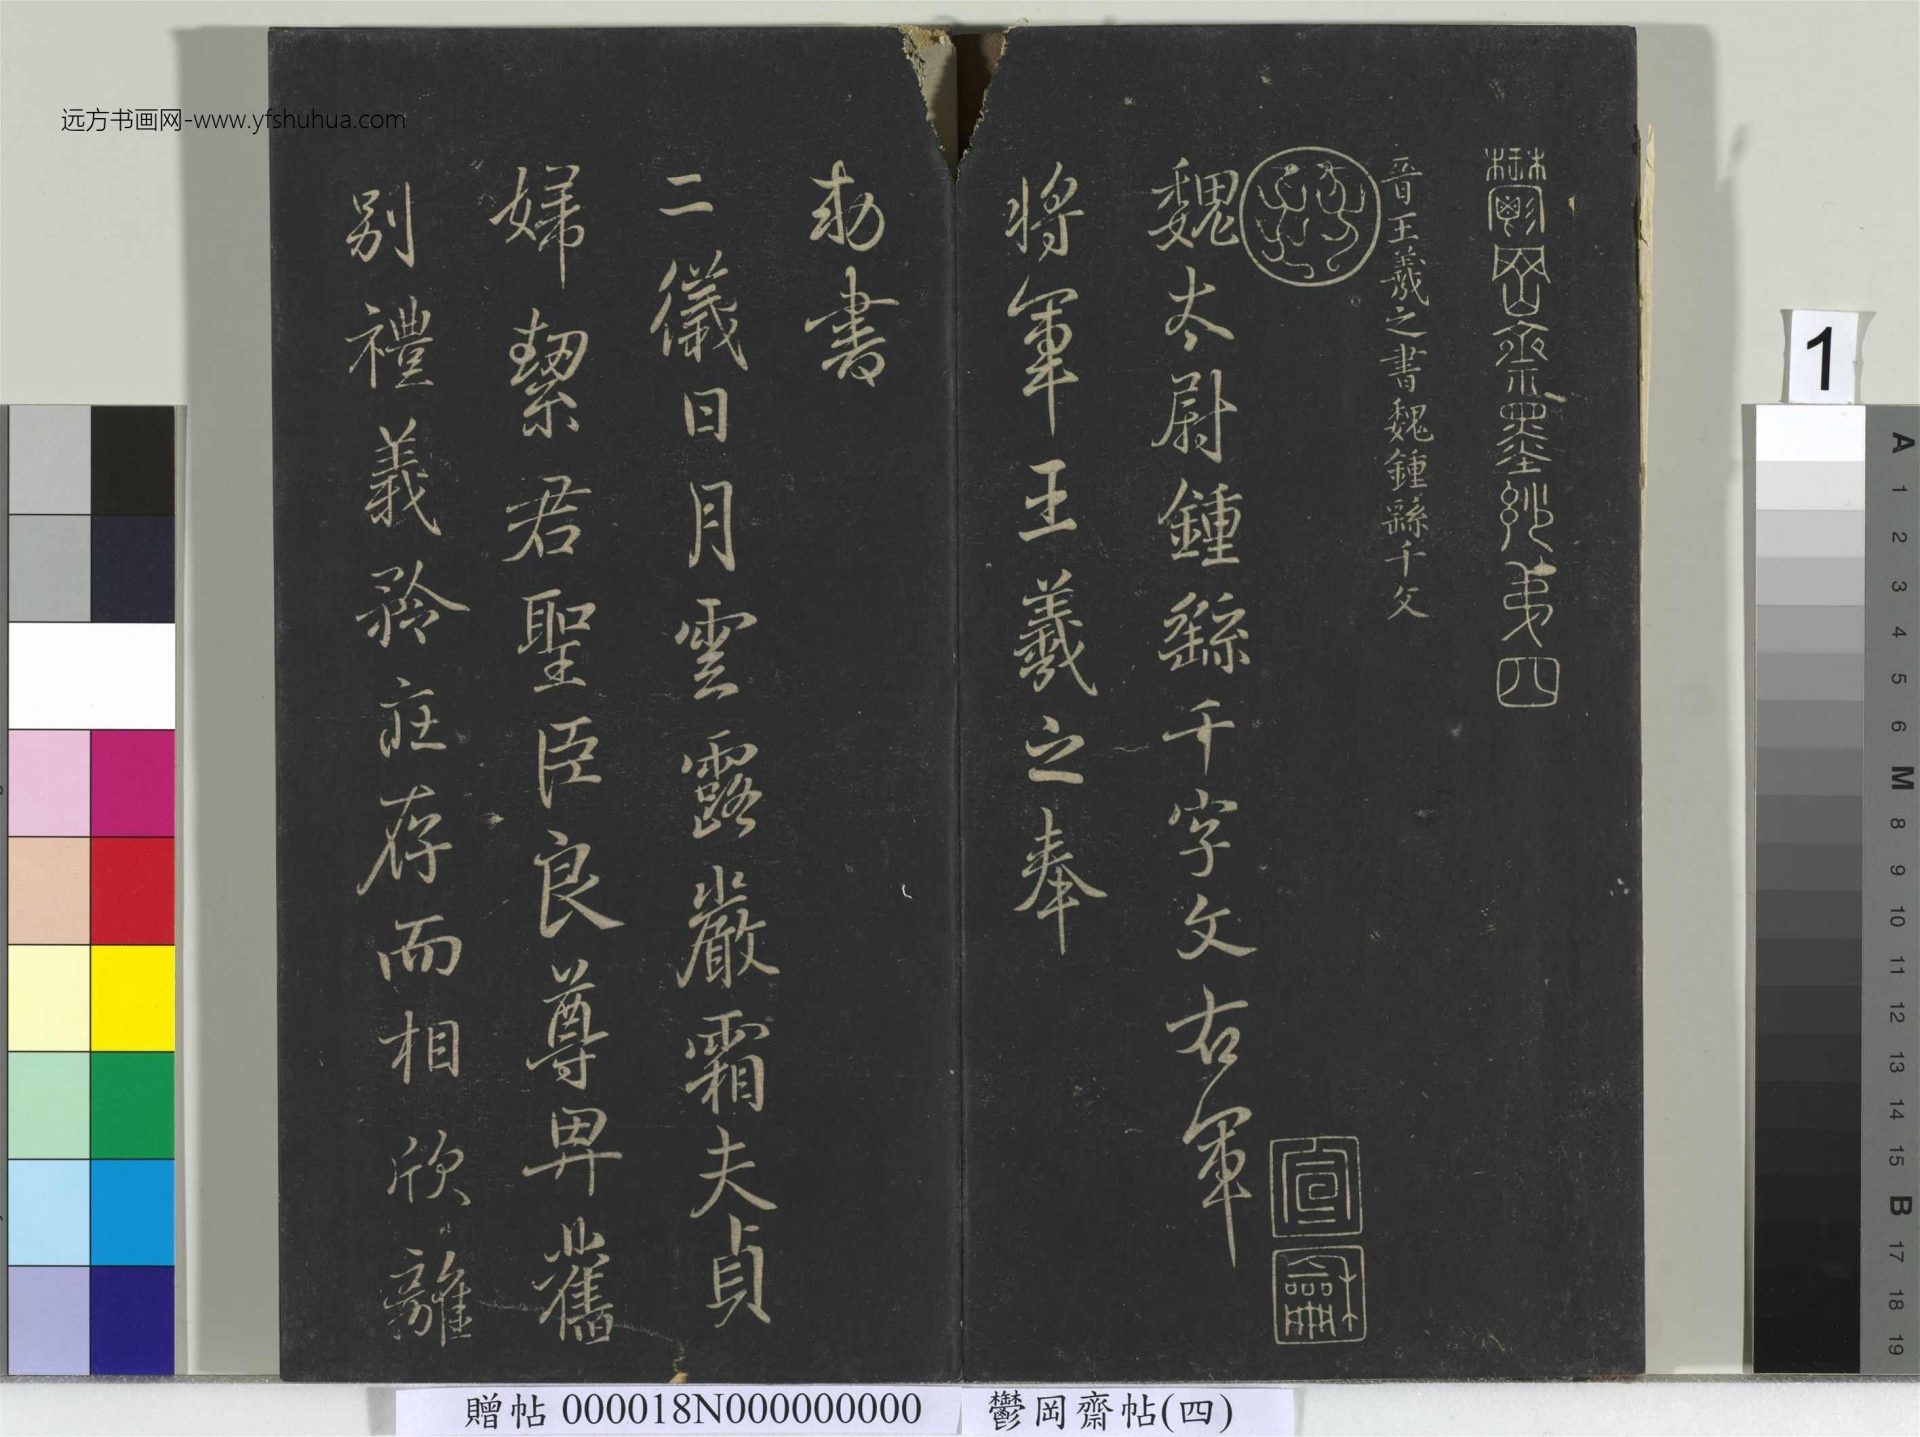 鬱岡齋墨妙第四
晉王羲之書魏鍾繇千文
魏太尉鍾繇千字文右軍
將軍王羲之奉
勅書
二儀日月雲露嚴霜夫貞
婦絜君聖臣良尊卑舊
別禮義矜庄存而相欣離
宣
龢
远方书画网-www.yfshuhua.com
贈帖 000018N000000000
鬱岡齋帖(四)
1
A
1
2
3
4
5
6
M
8
9
10
11
12
13
14
15
B
17
18
19